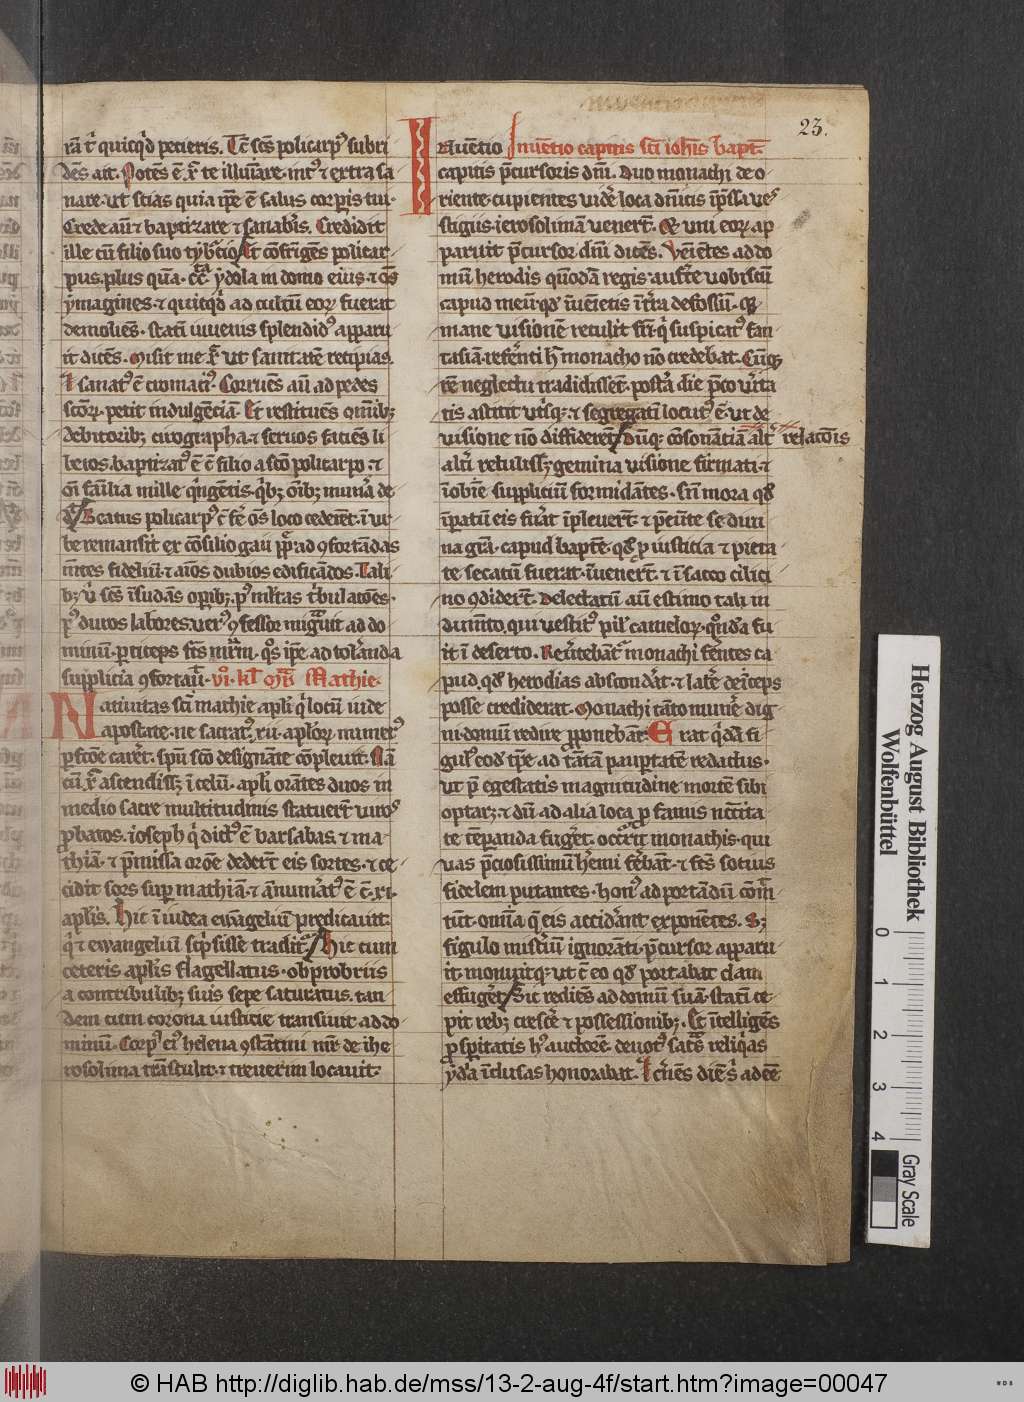 23.
rā t̄ quicq̄d petieris. Tc̄ sc̄s policarpꝰ subri
dēs ait. Potēs ē xp̄ te illuīare intꝰ ⁊ extra sa
nare. ut scias quia ip̄e ē salus corp̄is tui.
Crede aū ⁊ baptizare ⁊ sanab̄is. Credidit
ille cū filio suo
pus plus qua ydola in domo eius ⁊ oēs
ymagines ⁊ quicq̄d ad cultū eoꝝ fuerat
demoliēs. statī iuvenis splendidꝰ apparu
it dicēs. Misit me xp̄c ut sanitatē recipias.
⁊ sanatꝰ ē Corruēs aū ad pedes
sc̄oꝝ petit indulgētiā. Et restituēs omībꝫ
debitoribꝫ cirographa ⁊ servos faciēs li
beros. baptizatꝰ ē c̄ filio a sc̄o policarpo ⁊
familia mille
policarpꝰ oēs loco cederēt ī ur
be remansit ex cōsilio gaii pp̄ ad ꝯfortādas
mētes fideliū ⁊ aīos dubios edificādos. Tali
bꝫ sc̄s īsudās opibꝫ pꝰ ml̄tas t̄bulatoēs
pꝰ duros labores verꝰ ꝯfessor migvit ad do
minū. particeps
supplicia ꝯfortavit. vi. kl̄ mr̄ Mathie.
Nativitas sc̄i mathie apl̄i q̄ locū iude
apostate. ne sacratꝰ xii. aplōꝝ numerꝰ
pfc̄oe careret. spū sc̄o designāte cōplevit. Nā
cū xp̄c ascendissꝫ ī celū. apl̄i orātes duos in
medio sacre multitudinis statuerūt viros
probatos. ioseph q̄ dictꝰ ē barsabas ⁊ ma
thiā. ⁊ p̄missa oroē dederūt eis sortes. ⁊ ce
cidit sors sup mathiā ⁊ ānumeratꝰ ē c̄ xi.
apl̄is. Hic ī iudea ewangeliū predicavit.
q̄ ⁊ ewangeliū scp̄sisse tradit̄. Hic cum
ceteris apl̄is flagellatus. obprobriis
a contribulibꝫ suis sepe saturatus. tan
dem cum corona iusticie transivit ad do
minū. Corpꝰ eiꝰ helena ꝯstātini mr̄ de ihe
rosolima trāstulit. ⁊ treverim locavit.
Inuētio Inuētio capitis sc̄i ioh̄is bapt̄.
capitis p̄cursoris dn̄i. Duo monachi de o
riente. cupientes vidē loca dn̄icis īp̄ssa ve
stigiis. ierosolimam venert̄. Et uni eoꝝ ap
paruit p̄cursor dn̄i dicēs. Venientes ad do
mū herodis quōdā regis. auferte vobiscū
capud meū. qd̄ īuenietis ī t̄ra defossū. Qꝫ
mane visionē retulit frī q̄ suspicatꝰ fan
tasiā. referēti h̄ monacho nō credebat. Cūqꝫ
rē neglectui tradidissēt. posta die p̄co v̄ita
tis astitit ut̄sqꝫ ⁊ segregatī locutꝰ ē. ut de
visione nō diffiderēt. Dūqꝫ cōsonantiā alt̄ relacōis
alt̄i retulissꝫ. gemina visione firmati. ⁊
īobīe suppliciū formidātes. sn̄ mora qd̄
īpatū eis fu̅at īpleverūt. ⁊ p̄eūte se divi
na grā. capud bapt̄e. qd̄ p iusticia ⁊ pieta
te secatū fuerat. īvenert̄. ⁊ ī sacco cilici
no ꝯdiderūt. Delectatū aū estimo tali in
dumto. qui vestitꝰ pilꝭ cameloꝝ. quōdā fu
it ī deserto. Revertebāt̄ monachi ferētes ca
pud. qd̄ herodias absconderat. ⁊ latere deīceps
posse crediderat. Monachi tāto munē dig
ni. domū redire proponebāt. Erat q̄dā fi
gulꝰ eod̄ tp̄e ad tātā paup̄tatē redactus.
ut p̄ egestatis magnitudine mortē sibi
optarꝫ. ⁊ dū ad alia loca p famis necc̄ita
te repanda fugeret. occurrit monachis. qui
vas p̄ciosissimū h̄emi ferebāt. ⁊ frīs socius
fidelem putantes. honꝰ ad portādū
omīa q̄ eis accider̄at exponētes. Sꝫ
figulo misteriū ignorāti. p̄cursor apparu
it. monuitqꝫ ut c̄ eo qd̄ portabat clam
effugeret. Sic rediēs ad domū suā. statī ce
pit rebꝫ crescē ⁊ possessionibꝫ. Et ītelligēs
prosp̄itatis hꝰ auctorē. devotꝰ sacras reliqias
ydria īclusas honorabat. adeē
Herzog August Bibliothek
Wolfenbüttel
0 1 2 3 4
Gray Scale
© HAB http://diglib.hab.de/mss/13-2-aug-4f/start.htm?image=00047
WDB